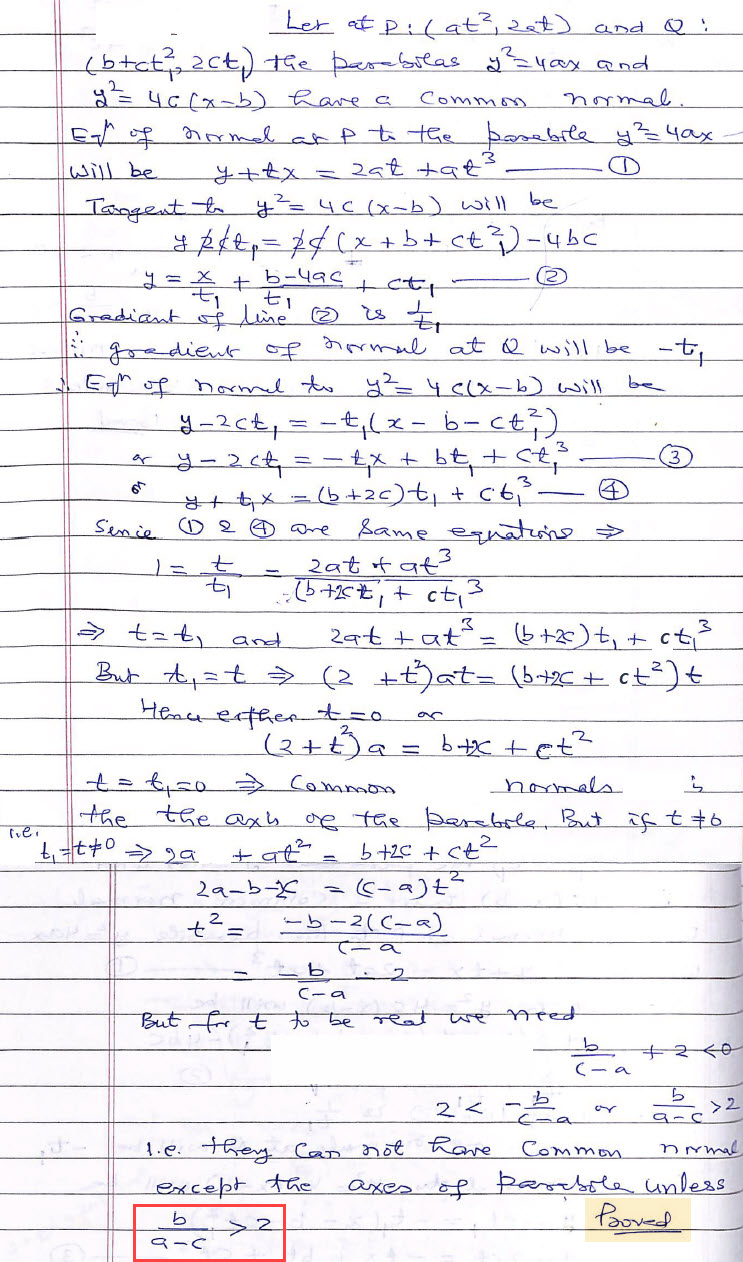 Let at P: (at², 2at) and Q:
(b+ct₁², 2ct₁) the parabolas y²=4ax and
y²= 4c(x-b) have a common normal.
Eqⁿ of normal at P to the parabola y²=4ax
will be y+tx = 2at +at³ — ①
Tangent to y²= 4c(x-b) will be
y 2ct₁= 2c(x+b+ct₁²)-4bc
y = x/t₁ + (b-4ac)/t₁ + ct₁ — ②
Gradiant of line ② is 1/t₁
∴ gradient of normal at Q will be -t₁
∴ Eqⁿ of normal to y²= 4c(x-b) will be
y-2ct₁ = -t₁(x-b-ct₁²)
or y-2ct₁ = -t₁x + bt₁ + ct₁³ — ③
or y+t₁x = (b+2c)t₁ + ct₁³ — ④
Sence ① & ④ are same equations ⇒
1 = t/t₁ = (2at + at³)/((b+2c)t₁ + ct₁³)
⇒ t=t₁ and 2at + at³ = (b+2c)t₁ + ct₁³
But t₁=t ⇒ (2 +t²)at= (b+2c + ct²)t
Hence either t=0 or
(2+t²)a = b+2c + ct²
t = t₁=0 ⇒ common normals is
the the axis of the parabola. But if t≠0
i.e. t₁=t≠0 ⇒ 2a + at² = b+2c + ct²
2a-b-2c = (c-a)t²
t² = (-b-2(c-a))/(c-a)
= -b/(c-a) - 2
But for t to be real we need
b/(c-a) + 2 <0
2 < -b/(c-a) or b/(a-c) >2
i.e. they can not have common normal
except the axes of parabola unless
b/(a-c) > 2 Proved